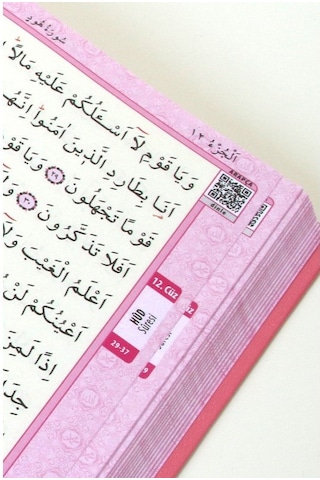 سُورَةُ هُودٍ
اَلْجُزْءُ ١٢
وَيَا قَوْمِ لَٓا اَسْـَٔلُكُمْ عَلَيْهِ مَالًاۜ
اَنَا۬ بِطَارِدِ الَّذ۪ينَ اٰمَنُواۜ اِنَّهُمْ
قَوْمًا تَجْهَلُونَ ﴿٢٩﴾ وَيَا قَوْمِ
اَفَلَا تَذَكَّرُونَ ﴿٣٠﴾
اَعْلَمُ الْغَيْبَ وَلَٓا
اَعْيُنُكُمْ لَنْ
اِذًا لَمِنَ
ARAPÇA
dinle
12. Cüz
HÛD
Sûresi
29-37